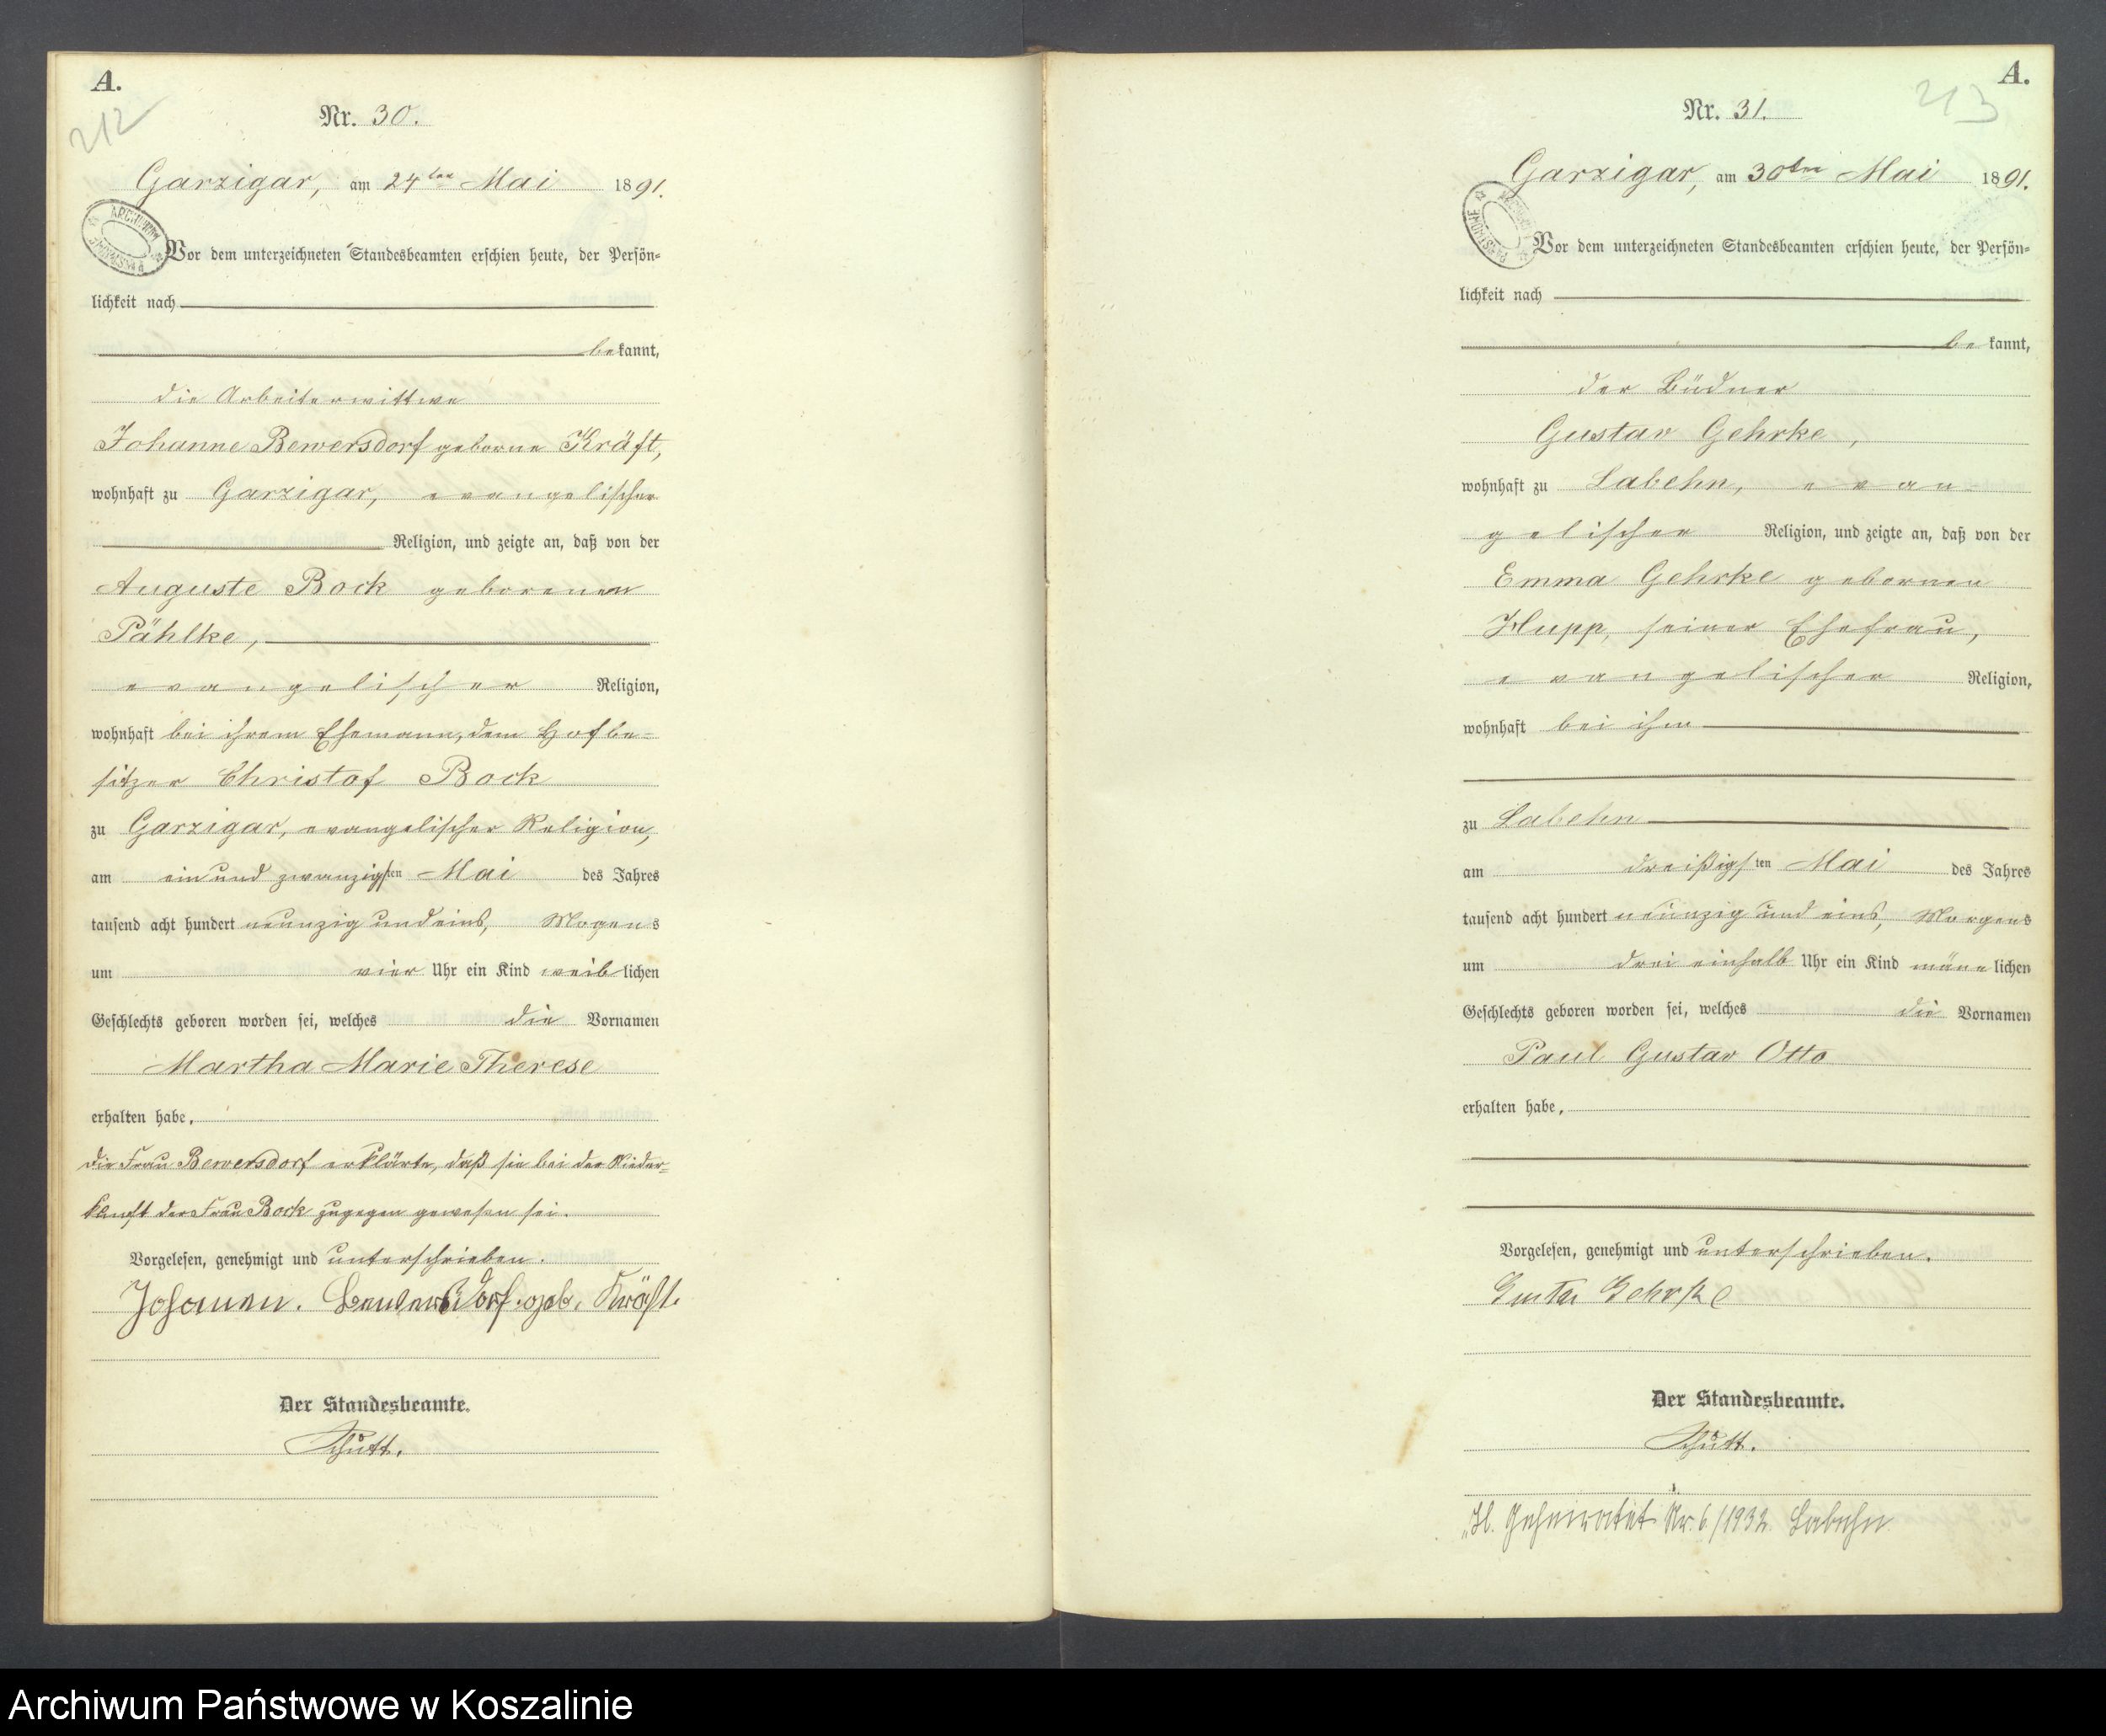 A.
212
Nr. 30.
Garzigar, am 24ten Mai 1891.
ARCHIWUM PAŃSTWOWE
Vor dem unterzeichneten Standesbeamten erschien heute, der Persön=
lichkeit nach
bekannt,
die Arbeiterwittwe
Johanne Bewersdorf geborne Kräft,
wohnhaft zu Garzigar, evangelischer
Religion, und zeigte an, daß von der
Auguste Bock geborenen
Pählke,
evangelischer Religion,
wohnhaft bei ihrem Ehemann, dem Hofbe=
sitzer Christof Bock
zu Garzigar, evangelischer Religion,
am ein und zwanzigsten Mai des Jahres
tausend acht hundert neunzig und eins, Mogens
um vier Uhr ein Kind weiblichen
Geschlechts geboren worden sei, welches die Vornamen
Martha Marie Therese
erhalten habe.
Die Frau Bewersdorf erklärte, daß sie bei der Nieder=
kunft der Frau Bock zugegen gewesen sei.
Vorgelesen, genehmigt und unterschrieben.
Bewersdorf geb. Kräft.
Der Standesbeamte.
Schütt.
A.
213
Nr. 31.
Garzigar, am 30ten Mai 1891.
ARCHIWUM PAŃSTWOWE
Vor dem unterzeichneten Standesbeamten erschien heute, der Persön=
lichkeit nach
bekannt,
der Büdner
Gustav Gehrke,
wohnhaft zu Labehn, evan=
gelischer Religion, und zeigte an, daß von der
Emma Gehrke gebornen
Hupp, seiner Ehefrau,
evangelischer Religion,
wohnhaft bei ihm
zu Labehn
am dreißigsten Mai des Jahres
tausend acht hundert neunzig und eins, Morgens
um drei einhalb Uhr ein Kind männlichen
Geschlechts geboren worden sei, welches die Vornamen
Paul Gustav Otto
erhalten habe.
Vorgelesen, genehmigt und unterschrieben.
Gehrke
Der Standesbeamte.
Schütt.
Geheiratet Nr. 6/1932 Labehn
Archiwum Państwowe w Koszalinie